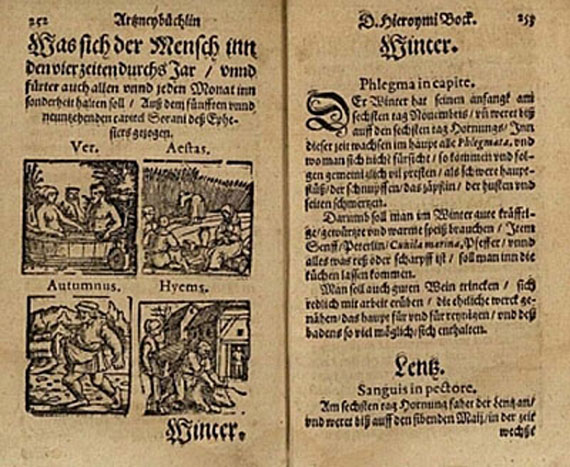 252 Artzneybüchlin
Was sich der Mensch inn
den vier zeiten durchs Jar / vnnd
fürter auch allen vnnd jeden Monat inn
sonderheit halten soll / Auß dem fünfften vnnd
neuntzehenden capitel Sorani deß Ephe-
siers gezogen.
Ver. Aestas.
Autumnus. Hyems.
Winter.
D. Hieroymi Bock. 253
Winter.
Phlegma in capite.
DEr Winter hat seinen anfangk am
sechsten tag Nouembris / vñ weret biß
auff den sechsten tag Hornungs / Inn
dieser zeit wachsen im haupt alle Phlegmata, vnd
wo man sich nicht fürsicht / so kommen vnd fol-
gen gemeinglich vil presten / als schwere haupt-
flüß / der schnupffen / das zäpflin / der husten vnd
seiten schmertzen.
Darumb soll man im Winter gute kräffti-
ge / gewürtze vnd warme speiß brauchen / Item
Senff / Peterlin / Cunila marina, Pfeffer / vnnd
alles was reß oder scharpff ist / soll man inn die
küchen lassen kommen.
Man soll auch guten Wein trincken / sich
redlich mit arbeit erüben / die ehrliche werck
das haupt für vnd für reynigen / vnd deß
badens so viel möglich / sich enthalten.
Lentz.
Sanguis in pectore.
Am sechsten tag Hornung fahet der Lentz an /
vnd weret biß auff den sibenden Maij / in der zeit
wechßt